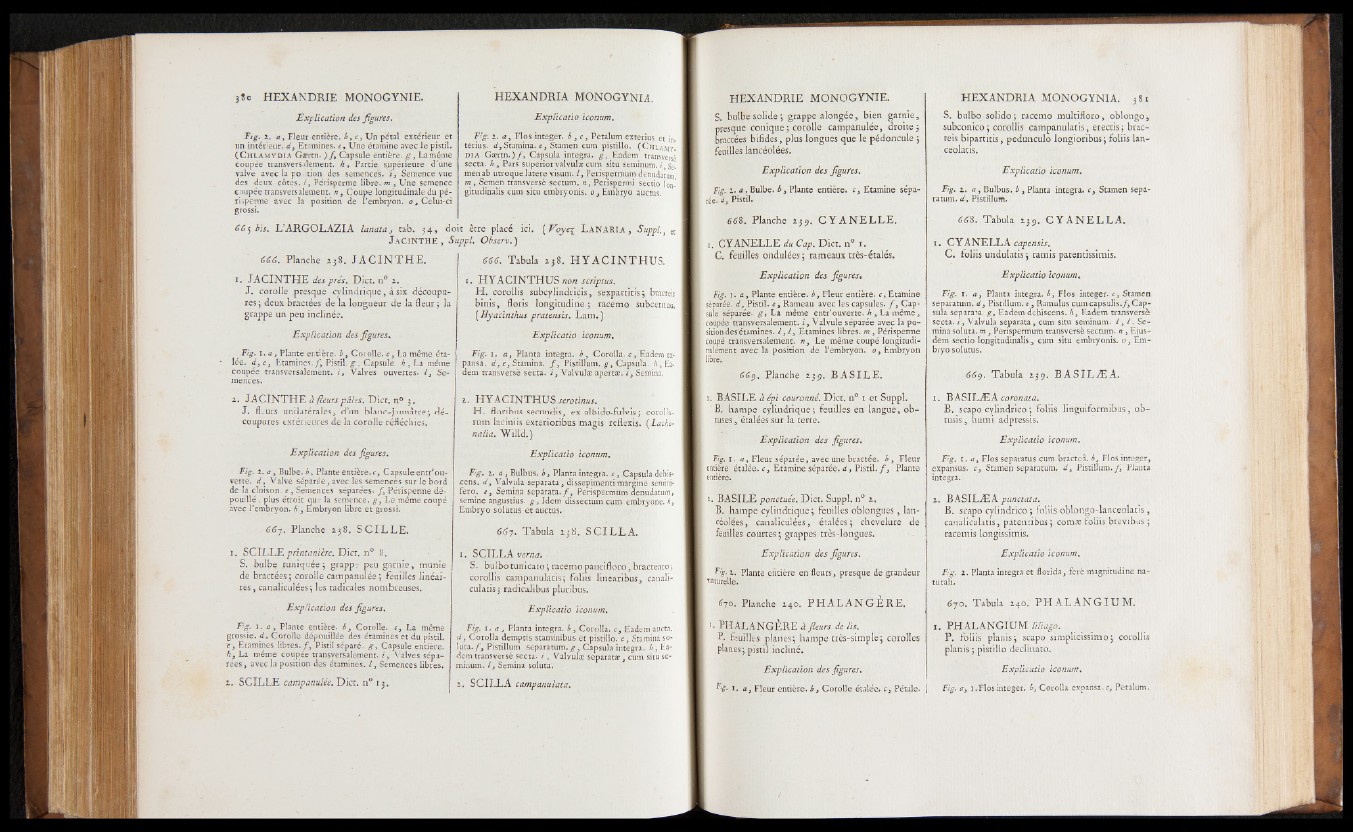 380 HEXANDRIE MONOGYNIE.
Explication des figures.
Fig. 2. a, Fleur entière. b, c, Un pétal extérieur et
un intérieur. d, Etamines. e, Une étamine avec le pistil.
(CHLAMYDIA Gærtn.) f, Capsule entière. g, La même
coupée transversalement. h, Partie supérieure d'une
valve avec la position des semences. i, Semence vue
des deux côtés. l, Périsperme libre. m, Une semence
coupée transversalement. n, Coupe longitudinale du pé-
risperme avec la position de l'embryon. o, Celui-ci
grossi.
HEXANDRIA MONOGYNIA.
Explicatio iconum.
Fig. 2. a, Flos integer. b, c, Petalum exterius et in-
terius. d, Stamina. e, Stamen cum pistillo. (CHLAMY-
DIA Gærtn.) f, Capsula integra. g, Eadem transversè
secta. h, Pars superior valvulæ cum situ seminum. i, Se-
men ab utroque latere visum. l, Perispermum denudatum.
m, Semen transversè sectum. n, Perispermi sectio lon-
gitudinalis cum situ embryonis. o, Embryo auctus.
665 bis. L'ARGOLAZIA lanata, tab. 34, doit être placé ici. (Voyez LANARIA, Suppl., et
JACINTHE, Suppl. Observ.)
666. Planche 238. JACINTHE.
1. JACINTHE des prés. Dict. n° 2.
J. corolle presque cylindrique, à six découpu-
res; deux bractées de la longueur de la fleur; la
grappe un peu inclinée.
Explication des figures.
Fig. 1. a, Plante entière. b, Corolle. c, La même éta-
lée. d, e, Etamines. f, Pistil. g, Capsule. h, La même
coupée transversalement. i, Valves ouvertes. l, Se-
mences.
2. JACINTHE à fleurs pâles. Dict. n° 3.
J. fleurs unilatérales, d'un blanc-jaunâtre; dé-
coupures extérieures de la corolle réfléchies.
Explication des figures.
Fig. 2. a, Bulbe. b, Plante entière. c, Capsule entr'ou-
verte. d, Valve séparée, avec les semences sur le bord
de la cloison. e, Semences séparées. f, Périsperme dé-
pouillé, plus étroit que la semence. g, Le même coupé
avec l'embryon. h, Embryon libre et grossi.
667. Planche 238. SCILLE.
1. SCILLE printanière. Dict. n° 8.
S. bulbe tuniquée; grappe peu garnie, munie
de bractées; corolle campanulée; feuilles linéai-
res, canaliculées; les radicales nombreuses.
Explication des figures.
Fig. 1. a, Plante entière. b, Corolle. c, La même
grossie. d, Corolle dépouillée des étamines et du pistil.
e, Etamines libres. f, Pistil séparé. g, Capsule entière.
h, La même coupée transversalement. i, Valves sépa-
rées, avec la position des étamines. l, Semences libres.
2. SCILLE campanulée. Dict. n° 13.
666. Tabula 238. HYACINTHUS.
1. HYACINTHUS non scriptus.
H. corollis subcylindricis, sexpartitis; bracteis
binis, floris longitudine; racemo subcernuo.
(Hyacinthus pratensis. Lam.)
Explicatio iconum.
Fig. 1. a, Planta integra. b, Corolla. c, Eadem ex-
pansa. d, e, Stamina. f, Pistillum. g, Capsula. h, Ea-
dem transversè secta. i, Valvulæ apertæ. l, Semina.
2. HYACINTHUS serotinus.
H. floribus secundis, ex albido-fulvis; corolla-
rum laciniis exterioribus magis reflexis. (Lache-
nalia. Willd.)
Explicatio iconum.
Fig. 2. a, Bulbus. b, Planta integra. c, Capsula dehis-
cens. d, Valvula separata, dissepimenti margine semini-
fero. e, Semina separata. f, Perispermum denudatum,
semine angustius. g, Idem dissectum cum embryone. h,
Embryo solutus et auctus.
667. Tabula 238. SCILLA.
1. SCILLA verna.
S. bulbo tunicato; racemo paucifloro, bracteato;
corollis campanulatis; foliis linearibus, canali-
culatis; radicalibus pluribus.
Explicatio iconum.
Fig. 1. a, Planta integra. b, Corolla. c, Eadem aucta.
d, Corolla demptis staminibus et pistillo. e, Stamina so-
luta. f, Pistillum separatum. g, Capsula integra. h, Ea-
dem transversè secta. i, Valvulæ separatæ, cum situ se-
minum. l, Semina soluta.
2. SCILLA campanulata.
HEXANDRIE MONOGYNIE.
S. bulbe solide; grappe alongée, bien garnie,
presque conique; corolle campanulée, droite;
bractées bifides, plus longues que le pédoncule;
feuilles lancéolées.
Explication des figures.
Fig. 2. a, Bulbe. b, Plante entière. c, Etamine sépa-
rée. d, Pistil.
668. Planche 239. CYANELLE.
1. CYANELLE du Cap. Dict. n° 1.
C. feuilles ondulées; rameaux très-étalés.
Explication des figures.
Fig. 1. a, Plante entière. b, Fleur entière. c, Etamine
séparée. d, Pistil. e, Rameau avec les capsules. f, Cap-
sule séparée. g, La même entr'ouverte. h, La même,
coupée transversalement. i, Valvule séparée avec la po-
sition des étamines. l, l, Etamines libres. m, Périsperme
coupé transversalement. n, Le même coupé longitudi-
nalement avec la position de l'embryon. o, Embryon
libre.
669. Planche 239. BASILE.
1. BASILE à épi couronné. Dict. n° 1 et Suppl.
B. hampe cylindrique; feuilles en langue, ob-
tuses, étalées sur la terre.
Explication des figures.
Fig. 1. a, Fleur séparée, avec une bractée. b, Fleur
entière étalée. c, Etamine séparée. d, Pistil. f, Plante
entière.
2. BASILE ponctuée. Dict. Suppl. n° 2.
B. hampe cylindrique; feuilles oblongues, lan-
céolées, canaliculées, étalées; chevelure de
feuilles courtes; grappes très-longues.
Explication des figures.
Fig. 2. Plante entière en fleurs, presque de grandeur
naturelle.
670. Planche 240. PHALANGÈRE.
1. PHALANGÈRE à fleurs de lis.
P. feuilles planes; hampe très-simple; corolles
planes; pistil incliné.
Explication des figures.
Fig. 1. a, Fleur entière. b, Corolle étalée. c, Pétale.
HEXANDRIA MONOGYNIA. 381
S. bulbo solido; racemo multifloro, oblongo,
subconico; corollis campanulatis, erectis; brac-
teis bipartitis, pedunculo longioribus; foliis lan-
ceolatis.
Explicatio iconum.
Fig. 2. a, Bulbus. b, Planta integra. c, Stamen sepa-
ratum. d, Pistillum.
668. Tabula 239. CYANELLA.
1. CYANELLA capensis.
C. foliis undulatis; ramis patentissimis.
Explicatio iconum.
Fig. 1. a, Planta integra. b, Flos integer. c, Stamen
separatum. d, Pistillum. e, Ramulus cum capsulis. f, Cap-
sula separata. g, Eadem dehiscens. h, Eadem transversè
secta. i, Valvula separata, cum situ seminum. l, l. Se-
mina soluta. m, Perispermum transversè sectum. n, Ejus-
dem sectio longitudinalis, cum situ embryonis. o, Em-
bryo solutus.
669. Tabula 239. BASILÆA.
1. BASILÆA coronata.
B. scapo cylindrico; foliis linguiformibus, ob-
tusis, humi adpressis.
Explicatio iconum.
Fig. 1. a, Flos separatus cum bracteâ. b, Flos integer,
expansus. c, Stamen separatum. d, Pistillum. f, Planta
integra.
2. BASILÆA punctata.
B. scapo cylindrico; foliis oblongo-lanceolatis,
canaliculatis, patentibus; comæ foliis brevibus;
racemis longissimis.
Explicatio iconum.
Fig. 2. Planta integra et florida, ferè magnitudine na-
turali.
670. Tabula 240. PHALANGIUM.
1. PHALANGIUM liliago.
P. foliis planis; scapo simplicissimo; corollis
planis; pistillo declinato.
Explicatio iconum.
Fig. a, 1. Flos integer. b, Corolla expansa. c, Petalum.